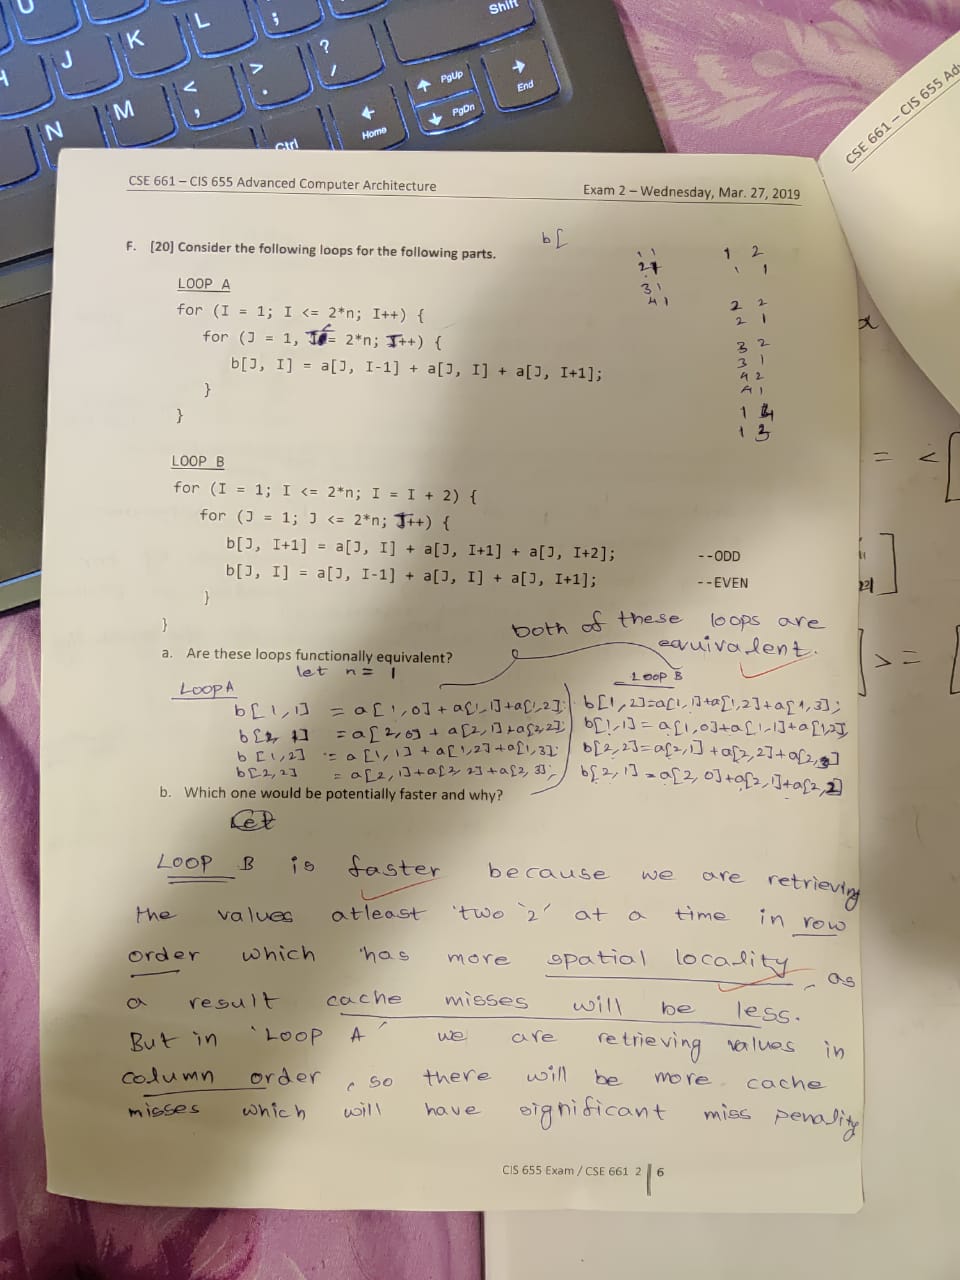 Shift
J
K
L
;
N
M
<
,
>
.
?
/
PgUp
PgDn
Home
End
Ctrl
CSE 661 – CIS 655 Adv
CSE 661 – CIS 655 Advanced Computer Architecture
Exam 2 – Wednesday, Mar. 27, 2019
b[
F. [20] Consider the following loops for the following parts.
1 1
2 1
3 1
4 1
1 2
1 1
2 2
2 1
3 2
3 1
4 2
4 1
1 4
1 3
LOOP A
for (I = 1; I <= 2*n; I++) {
for (J = 1, J<= 2*n; J++) {
b[J, I] = a[J, I-1] + a[J, I] + a[J, I+1];
}
}
LOOP B
for (I = 1; I <= 2*n; I = I + 2) {
for (J = 1; J <= 2*n; J++) {
b[J, I+1] = a[J, I] + a[J, I+1] + a[J, I+2]; --ODD
b[J, I] = a[J, I-1] + a[J, I] + a[J, I+1]; --EVEN
}
}
both of these loops are
equivalent.
a. Are these loops functionally equivalent?
let n = 1
LOOP A
b[1,1] = a[1,0]+a[1,1]+a[1,2];
b[2,1] = a[2,0]+a[2,1]+a[2,2];
b[1,2] = a[1,1]+a[1,2]+a[1,3];
b[2,2] = a[2,1]+a[2,2]+a[2,3];
LOOP B
b[1,2]=a[1,1]+a[1,2]+a[1,3];
b[1,1]=a[1,0]+a[1,1]+a[1,2];
b[2,2]=a[2,1]+a[2,2]+a[2,3]
b[2,1]=a[2,0]+a[2,1]+a[2,2]
b. Which one would be potentially faster and why?
Let
LOOP B is faster because we are retrieving
the values atleast 'two '2' at a time in row
order which has more spatial locality, as
a result cache misses will be less.
But in 'LOOP A' we are retrieving values in
column order, so there will be more cache
misses which will have significant miss penality
CIS 655 Exam / CSE 661 2 | 6
= < [
] > = [